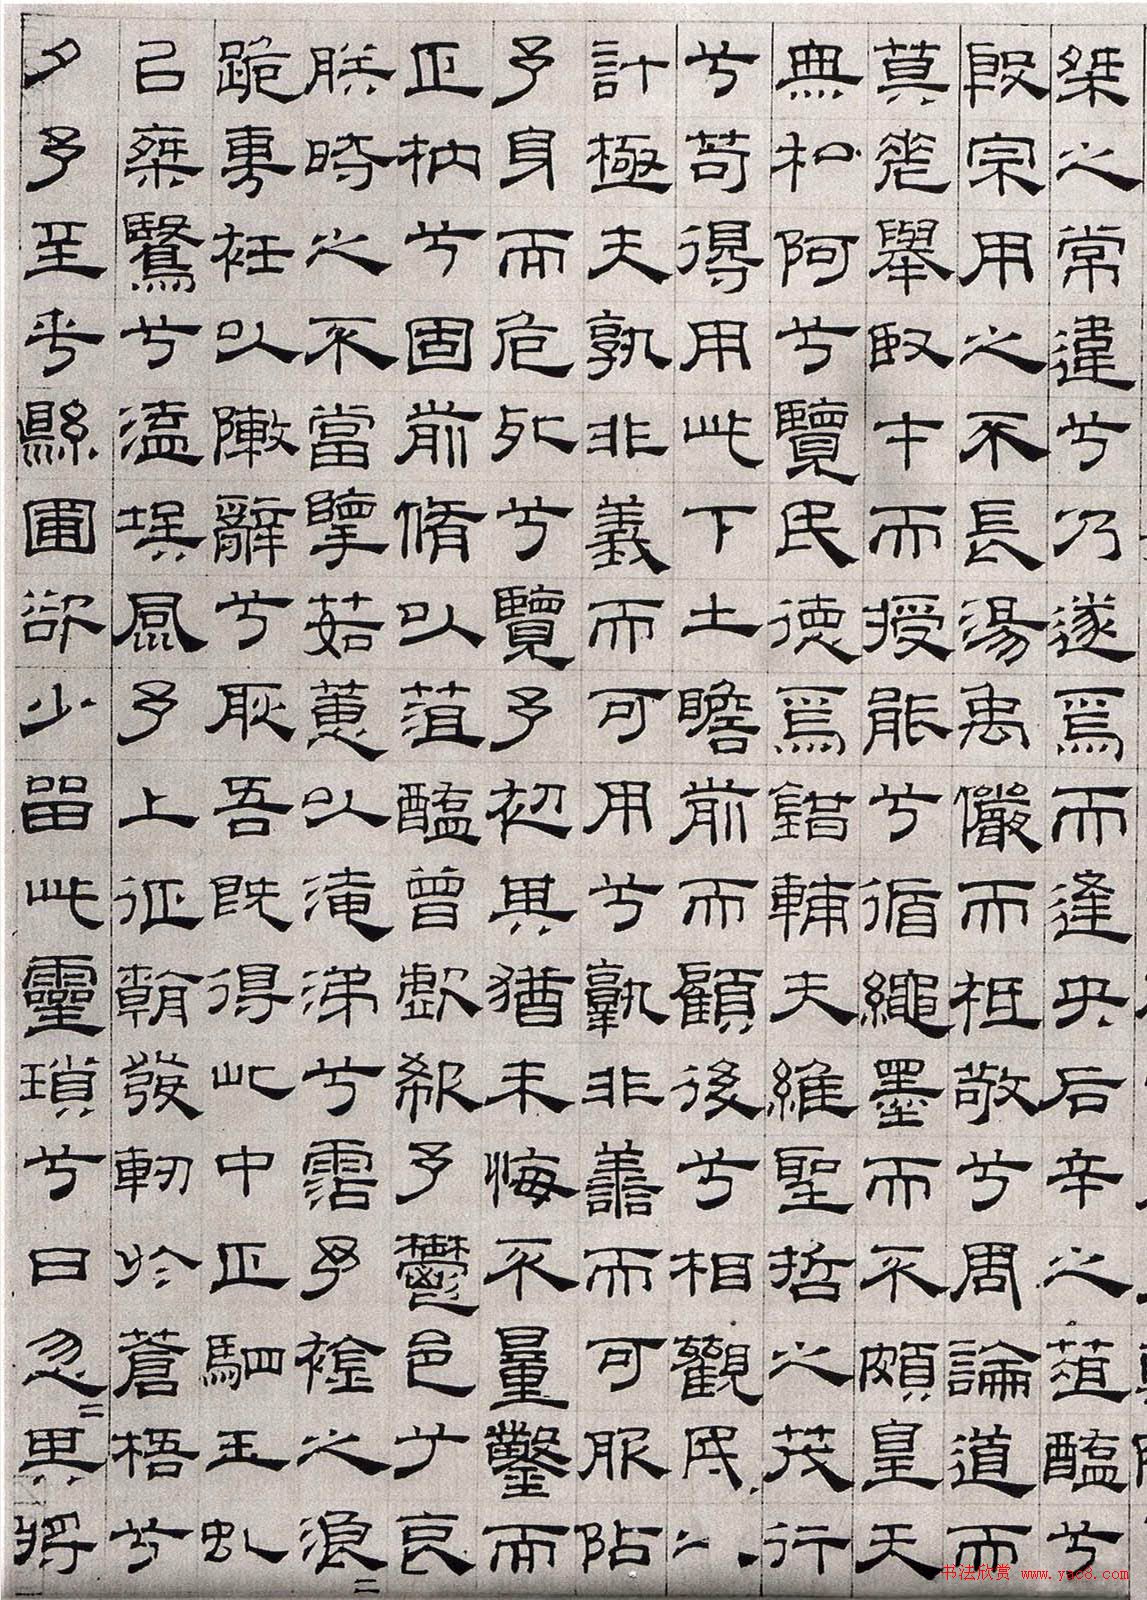 桀之常違兮乃遂焉而逢央后辛之菹醢兮
殷宗用之不長湯禹儼而祗敬兮周論道而
莫差舉臤才而授能兮循繩墨而不頗皇天
無私阿兮覽民德焉錯輔夫維聖哲之茂行
兮苟得用此下土瞻前而顧後兮相觀民之
計極夫孰非義而可用兮孰非善而可服阽
予身而危死兮覽予初其猶未悔不量鑿而
正枘兮固前脩以菹醢曾歔欷予鬱邑兮哀
朕時之不當擥茹蕙以淹涕兮霑予襟之浪=
跪專衽以陳辭兮耿吾既得此中正駟玉虬
以乘鷖兮溘埃風予上征朝發軔於蒼梧兮
夕予至乎縣圃欲少留此靈瑣兮日忽=其將
书法欣赏 www.yac8.com